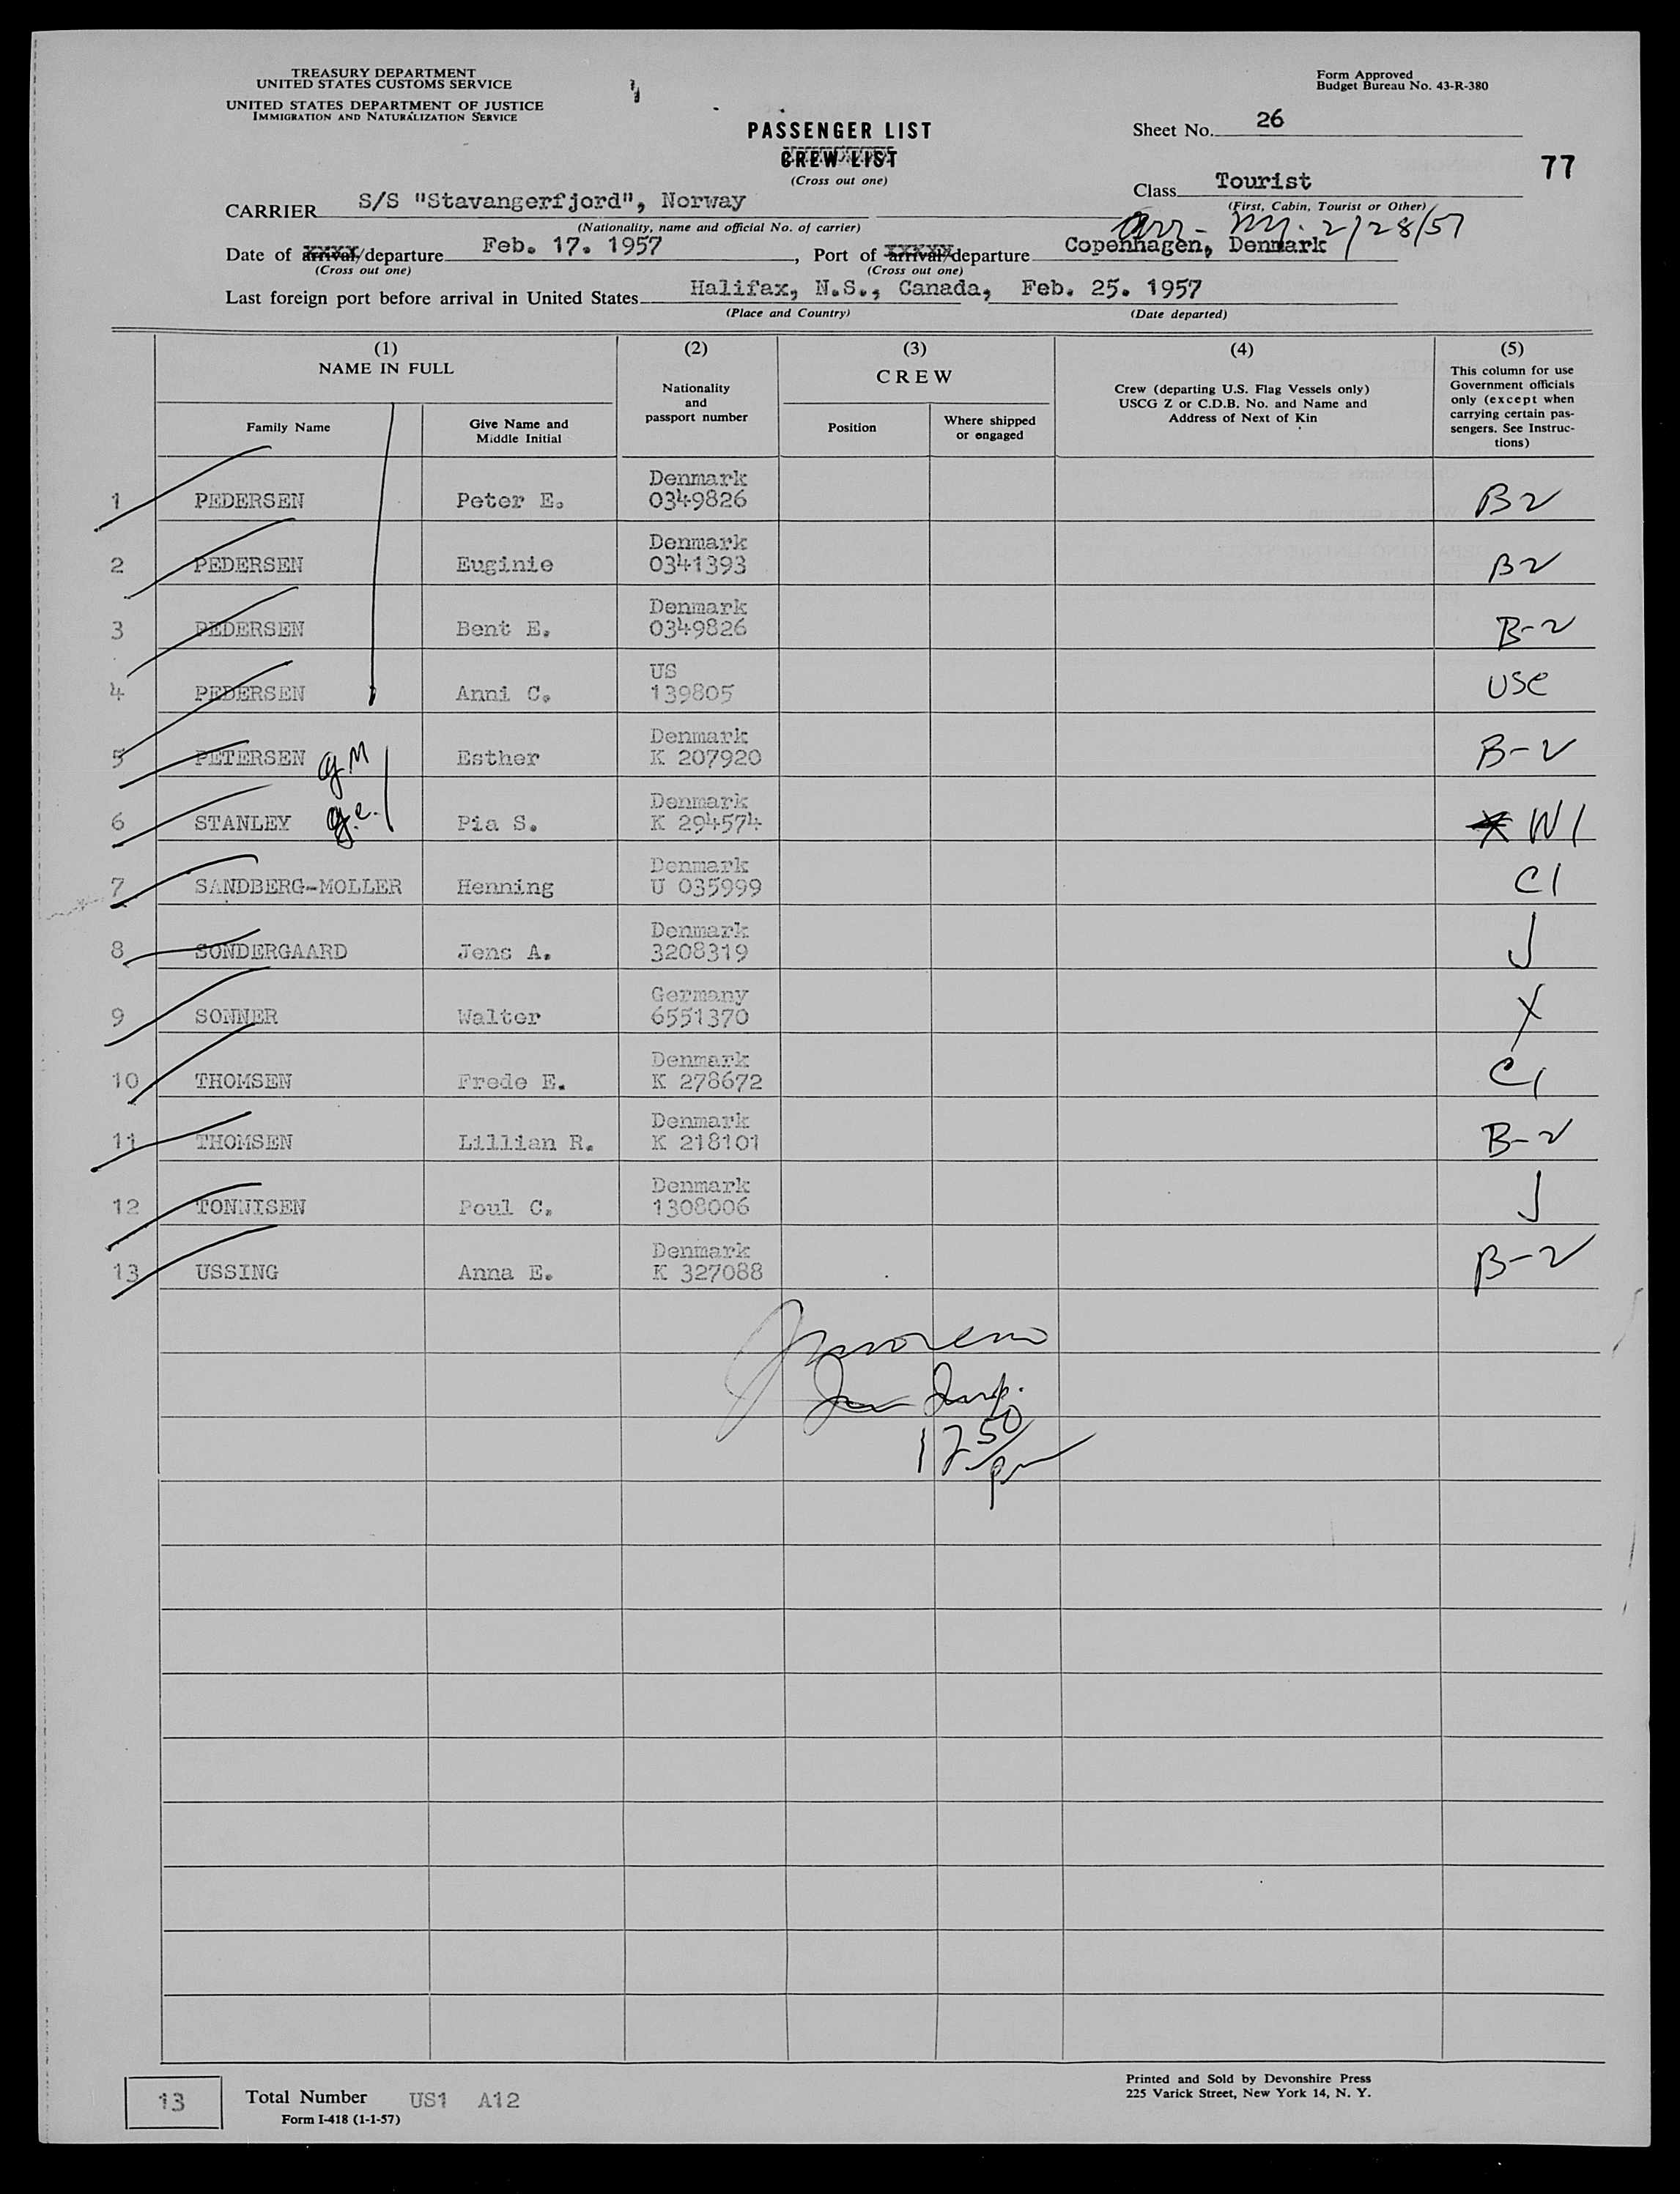 TREASURY DEPARTMENT
UNITED STATES CUSTOMS SERVICE
UNITED STATES DEPARTMENT OF JUSTICE
IMMIGRATION AND NATURALIZATION SERVICE
Form Approved
Budget Bureau No. 43-R-380
PASSENGER LIST
CREW LIST
(Cross out one)
Sheet No. 26
77
Class Tourist
(First, Cabin, Tourist or Other)
CARRIER S/S "Stavangerfjord", Norway
(Nationality, name and official No. of carrier)
Arr- NY. 2/28/57
Date of arrival/departure Feb. 17. 1957, Port of arrival/departure Copenhagen, Denmark
(Cross out one) (Cross out one)
Last foreign port before arrival in United States Halifax, N.S., Canada, Feb. 25. 1957
(Place and Country) (Date departed)
(1) (2) (3) (4) (5)
NAME IN FULL
Nationality
and
passport number
CREW
Crew (departing U.S. Flag Vessels only)
USCG Z or C.D.B. No. and Name and
Address of Next of Kin
This column for use
Government officials
only (except when
carrying certain pas-
sengers. See Instruc-
tions)
Family Name
Give Name and
Middle Initial
Position
Where shipped
or engaged
Denmark
1 PEDERSEN Peter E. 0349826 B2
Denmark
2 PEDERSEN Euginie 0341393 B2
Denmark
3 PEDERSEN Bent E. 0349826 B-2
US
4 PEDERSEN Anni C. 139805 USC
Denmark
5 PETERSEN Esther K 207920 B-2
Denmark
6 STANLEY Pia S. K 294574 W1
Denmark
7 SANDBERG-MOLLER Henning U 035999 C1
Denmark
8 SONDERGAARD Jens A. 3208319 J
Germany
9 SONNER Walter 6551370 X
Denmark
10 THOMSEN Frede E. K 278672 C1
Denmark
11 THOMSEN Lillian R. K 218101 B-2
Denmark
12 TONNISEN Poul C. 1308006 J
Denmark
13 USSING Anna E. K 327088 B-2
Insp.
12 50
pm
13 Total Number US1 A12
Form I-418 (1-1-57)
Printed and Sold by Devonshire Press
225 Varick Street, New York 14, N. Y.